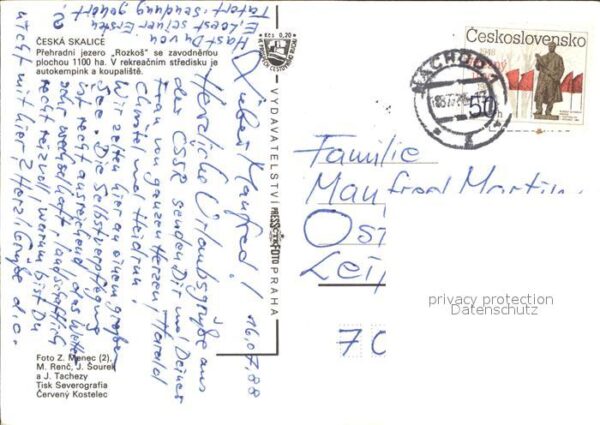 ČESKÁ SKALICE
Přehradní jezero „Rozkoš" se zavodněnou
plochou 1100 ha. V rekreačním středisku je
autokempink a koupaliště.
Foto Z. Menec (2),
M. Renč, J. Šourek
a J. Tachezy
Tisk Severografia
Červený Kostelec
Kčs 0,20
VYDAVATELSTVÍ PRESSFOTO PRAHA
Československo
50h
NÁCHOD 1
16.07.88
Lieber Manfred!
Herzliche Urlaubsgrüße aus
der CSSR senden Dir und Deiner
Frau von ganzem Herzen Harald
Christel und Heidrun.
Wir zelten hier an einem großen
See. Die Selbstverpflegung
ist recht ausreichend, das Wetter
sehr wechselhaft, landschaftlich
recht reizvoll, warum bist Du
nicht mit hier? Herzl. Grüße d.o.
Hast Du von
E. Loest seiner Ersten
Tatort-Sendung gehört?
Familie
Manfred Martin
Ost
Leip
70
privacy protection
Datenschutz